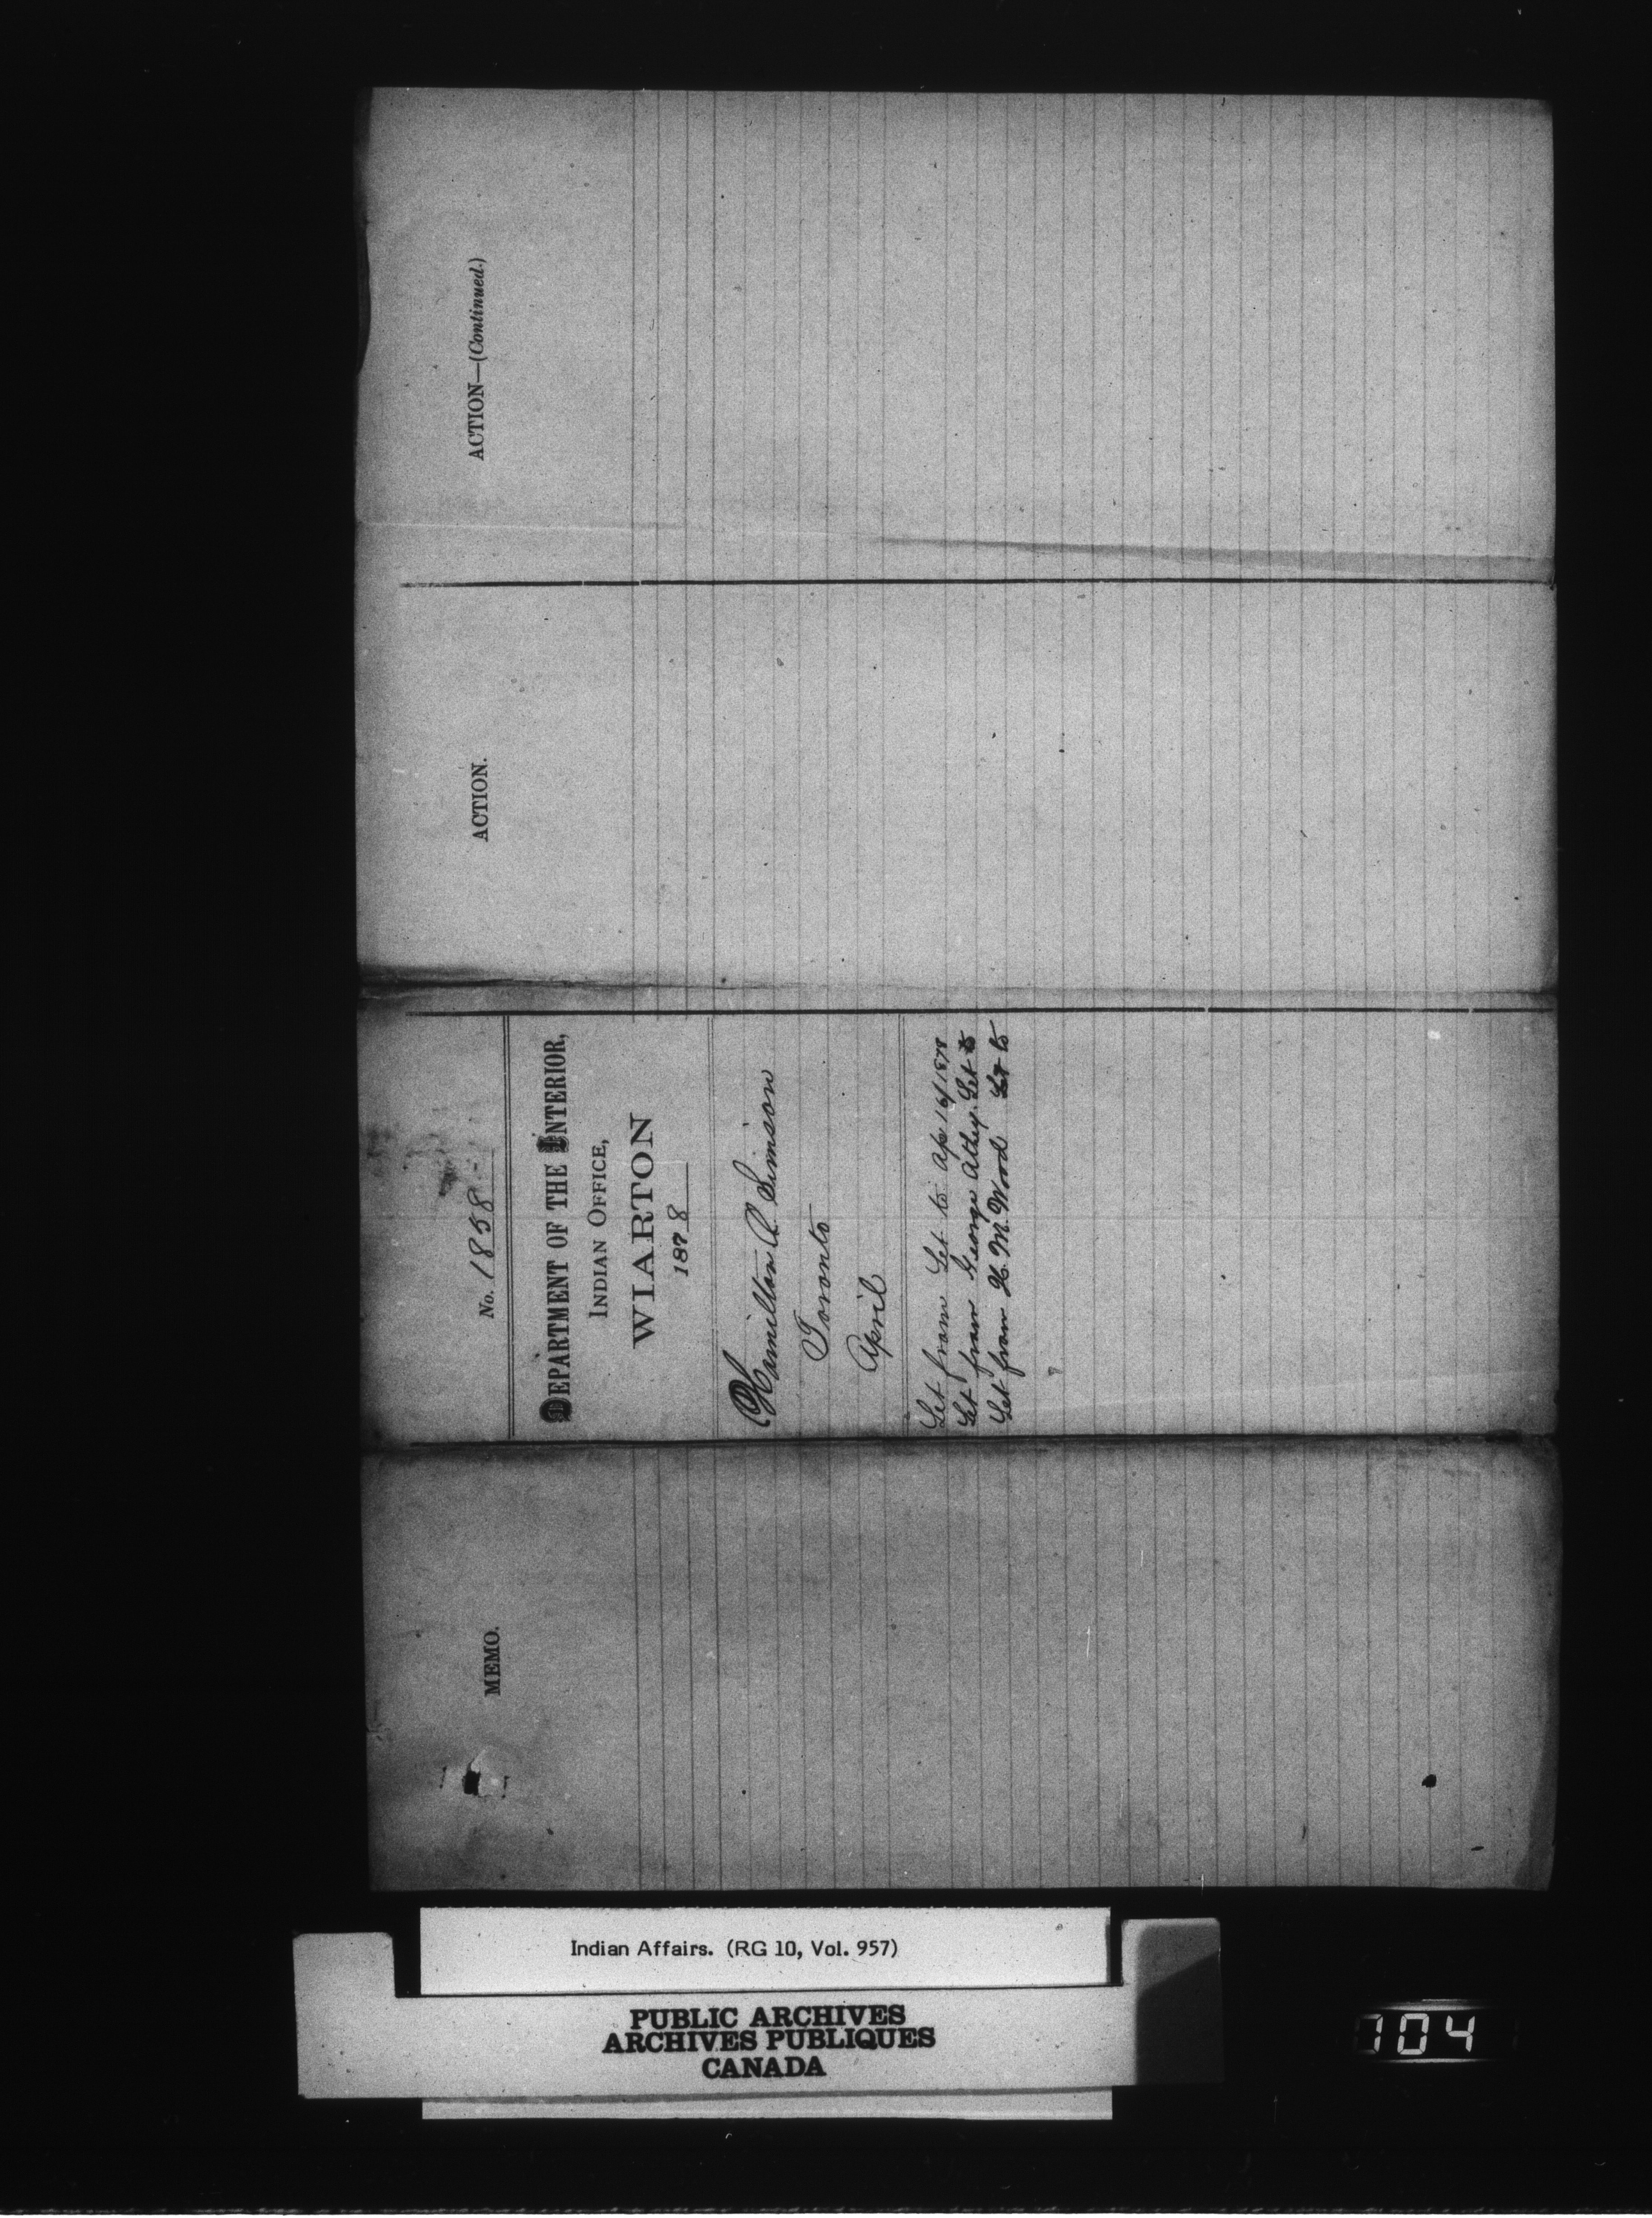 MEMO.
No. 1858
DEPARTMENT OF THE INTERIOR,
INDIAN OFFICE,
WIARTON
1878
Hamilton A. Simson
Toronto
April
Let from Let to Ap 16/1878
Let from George Athey. Let to
Let from H. M. Wood Let to
ACTION.
ACTION—(Continued.)
Indian Affairs. (RG 10, Vol. 957)
PUBLIC ARCHIVES
ARCHIVES PUBLIQUES
CANADA
104